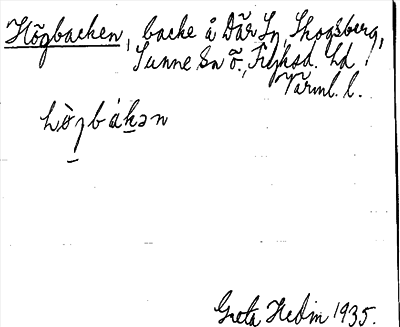 Högbacken, backe å Där Sn, Skogsberg,
Sunne Sn ö., Fryksd. Hd
Värml. l.
hò̱gbákən
Greta Hedin 1935.